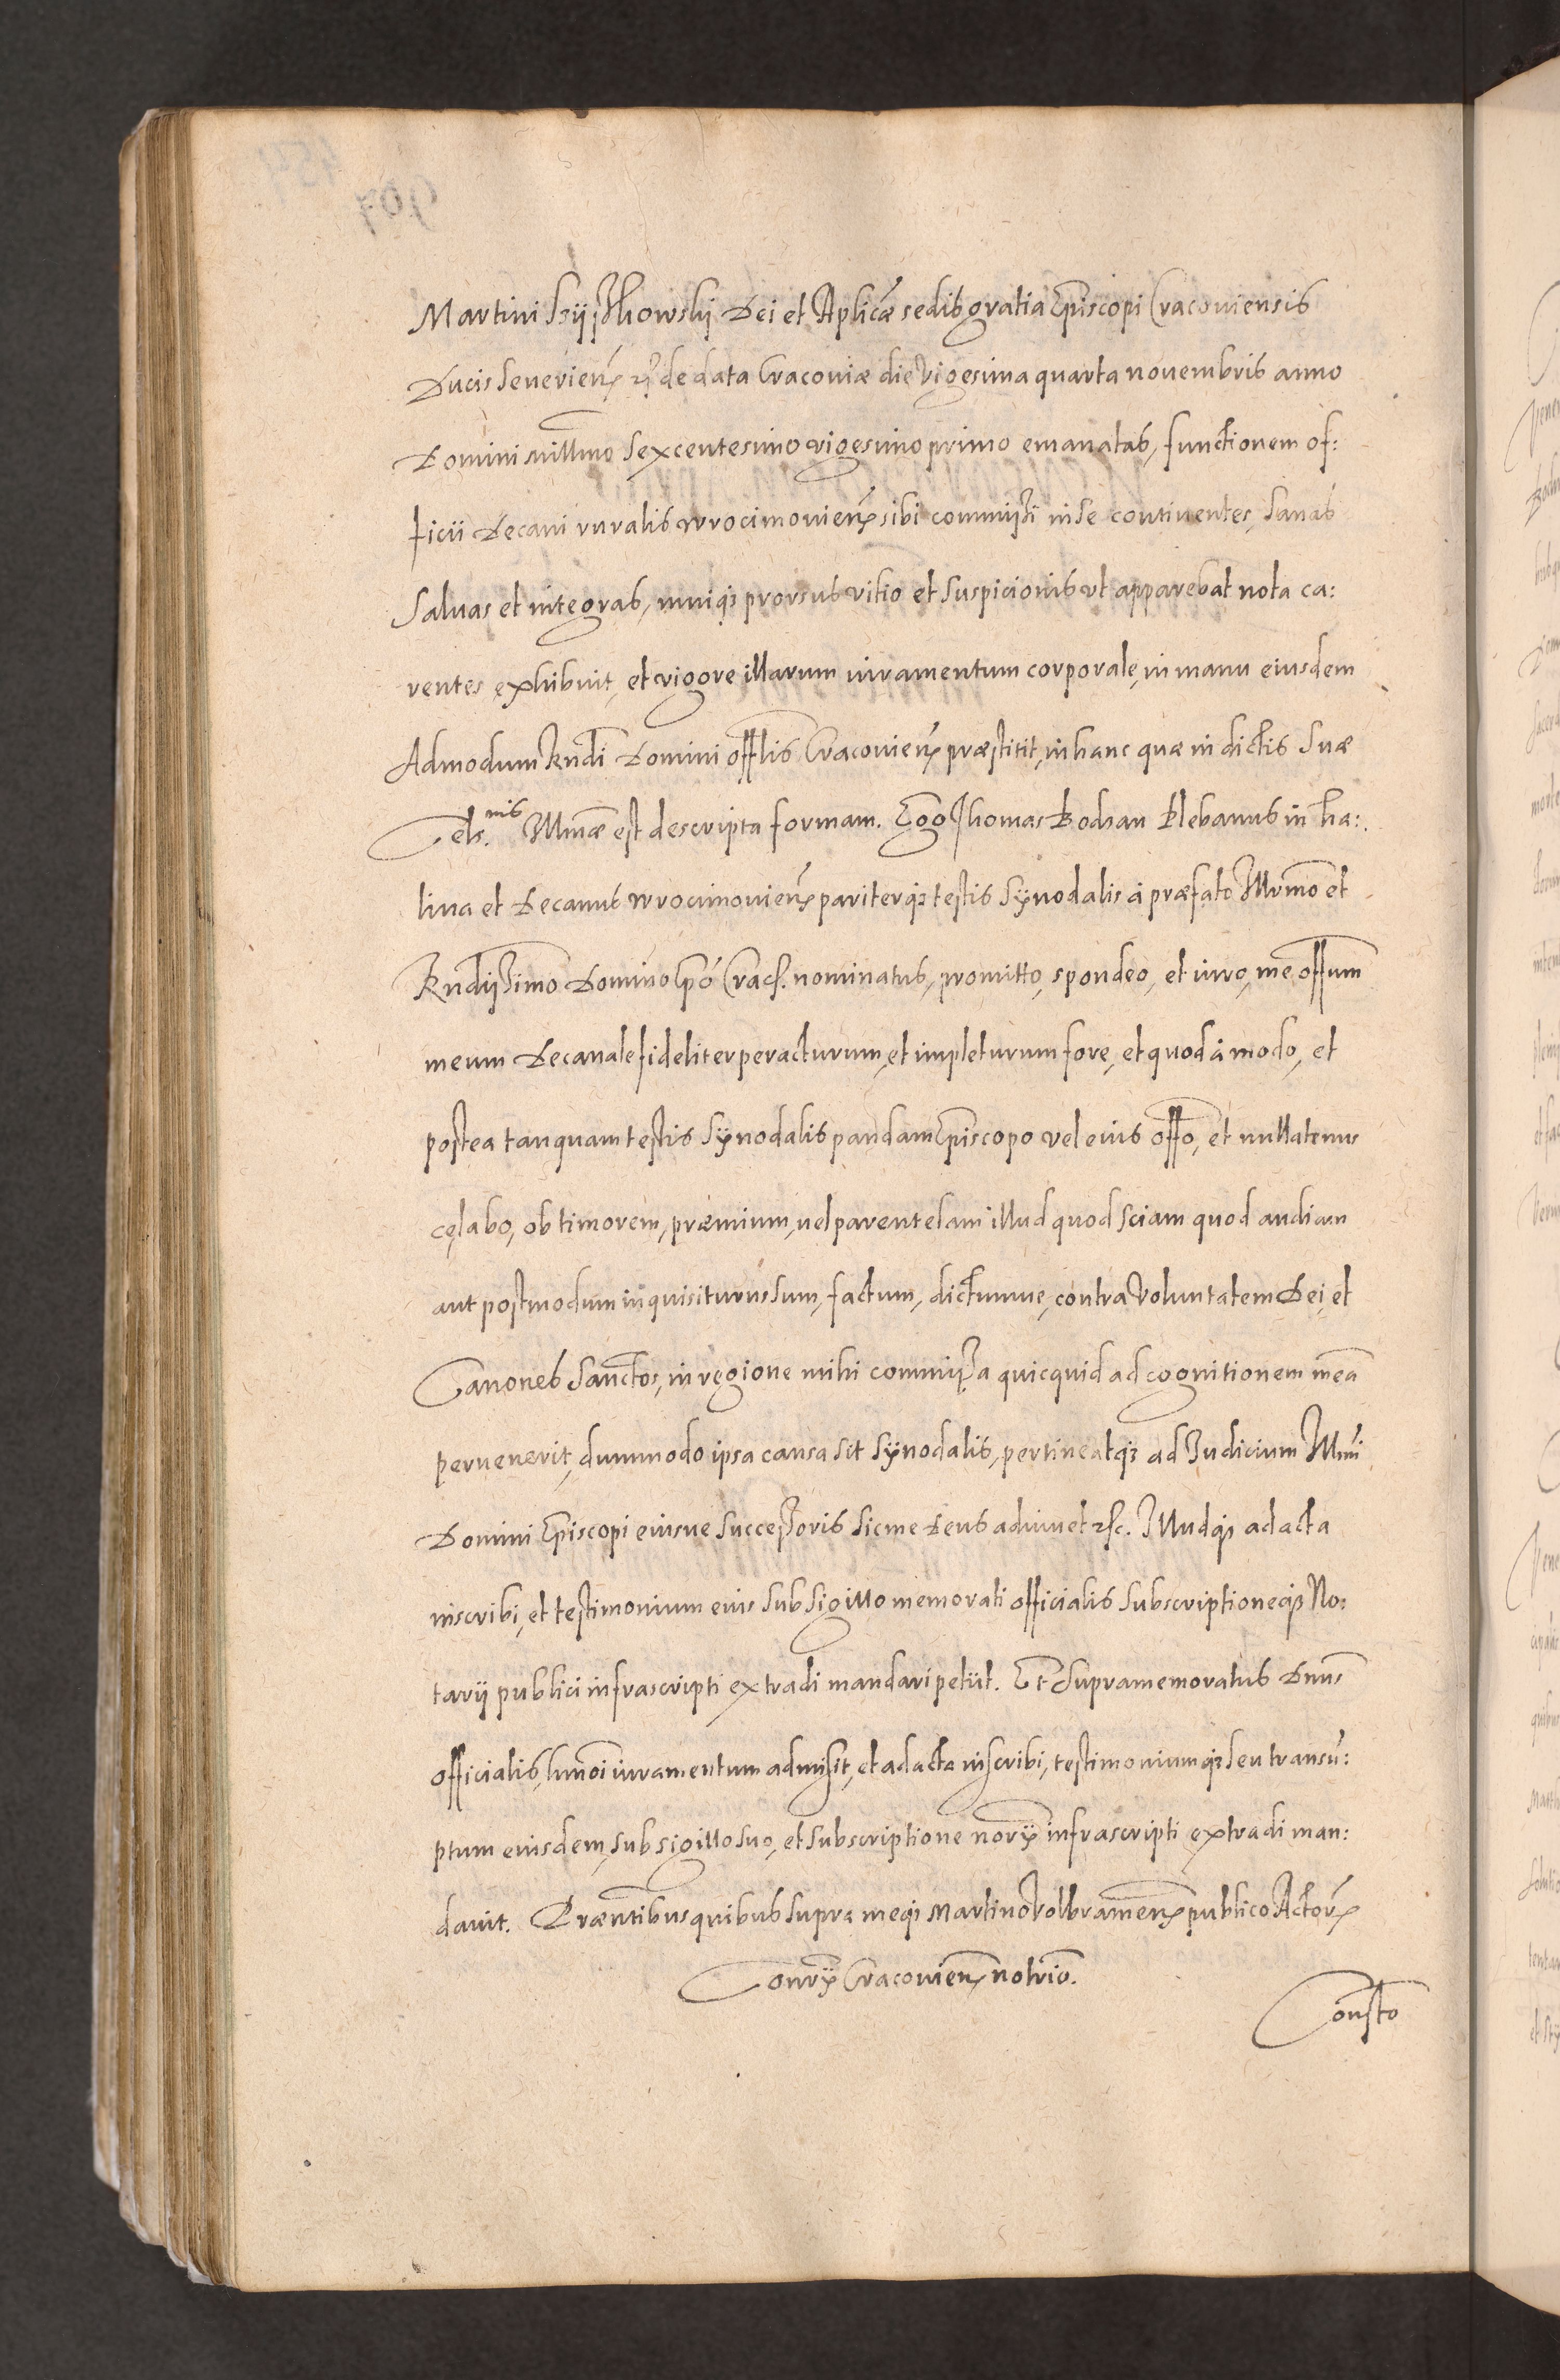 Martini Szyszkowskij Dei et Aplicæ sedis gratia Episcopi Cracouiensis
Ducis Seueriens̃ &c̃ de data Cracouiæ die Vigesima quarta nouembris anno
Domini millmo Sexcentesimo vigesimo primo emanatas, functionem of:
ficii Decani ruralis wrocimouiens̃ sibi commissi in se continentes, Sanas
Saluas et integras, omniq3 prorsus vitio et Suspicionis vt apparebat nota ca:
rentes, exhibuit, et vigore illarum iuramentum corporale, in manu eiusdem
Admodum Rndi Domini offlis Cracouiens̃ præstitit, in hanc quæ in dictis Suæ
Cels.nis Illmæ est descripta formam. Ego Thomas Bodzan Plebanus in Tha:
lina et Decanus wrocimouiens̃ pariterq3 testis Synodalis à præfato Illrmo et
Rndissimo Domino Epõ Cracs. nominatus, promitto, spondeo, et iuro, me offum
meum Decanale fideliter peracturum, et impleturum fore, et quod à modo, et
postea tanquam testis Synodalis pandam Episcopo vel eius offo, et nullatenus
cęlabo, ob timorem, præmium, uel parentelam illud quod Sciam quod audiam
aut postmodum inquisiturus sum, factum, dictumue, contra Voluntatem Dei, et
Canones Sanctos, in regione mihi commissa quicquid ad cognitionem meã
peruenerit, dummodo ipsa causa sit Synodalis, pertineatq3 ad Iudicium Illmi
Domini Episcopi eiusue Successoris Sic me Deus adiuuet &c. Illudq3 ad acta
inscribi, et testimonium eius Sub Sigillo memorati officialis Subscriptioneq3 No:
tarij publici infrascripti extradi mandari petiit. Et Supramemoratus Dnus
officialis, hmõi iuramentum admisit, et ad acta inscribi, testimoniumq3 seu transũ:
ptum eiusdem, sub sigillo suo, et subscriptione norij infrascripti extradi man:
dauit. Præntibus quibus supra meq3 Martino Volbramens̃ publico Actor̃
Consrij Cracouiens̃ notrio.
Consto